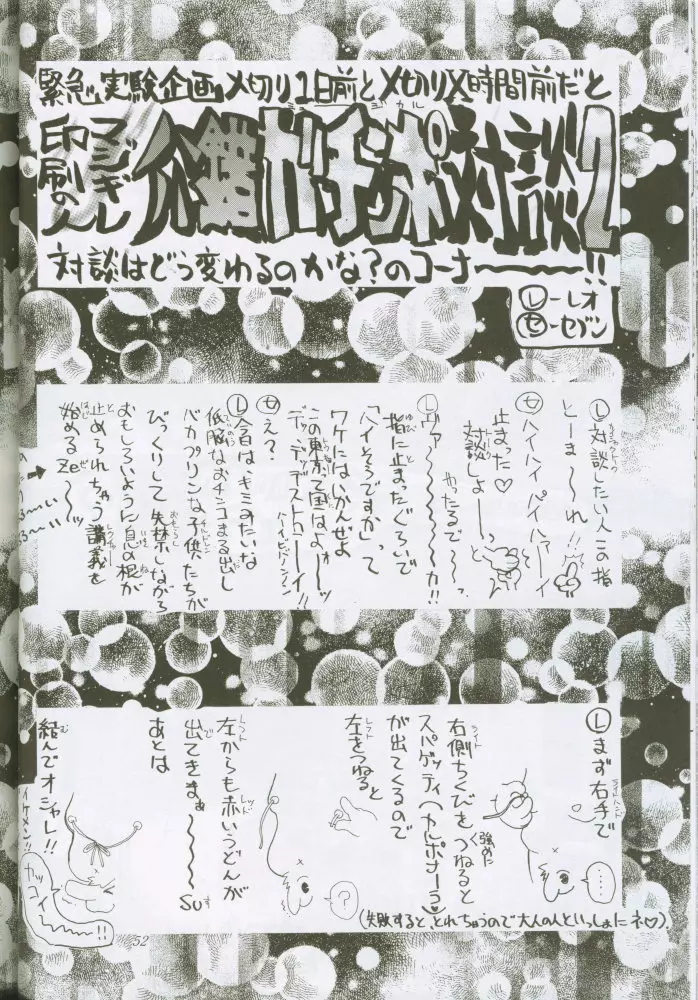 緊急実験企画〆切り1日前と〆切りX時間前だと
印刷の人
マジギレ
ガチンポ対談2
対談はどう変わるのかな?のコーナー〜〜〜!!
Ⓛーレオ
セーセブン
Ⓛ対談したい人この指
とーま〜〜れ!!
セ ハイハイ パイハァーイ
止まった♡
対談しよーーっ
Ⓛヴァー〜〜〜〜カ!!
やったるで〜〜っ
指に止まったぐらいで
「ハイそうですか」って
ワケにはいかんぜよ
この東京って国はよォ〜〜ッ
デッ・デッデストローイ!!
セ え?
Ⓛ今日はキミみたいな
低脳なおチンコまる出し
バカプリンな子供たちが
びっくりして失禁しながら
おもしろいように息の根が
止められちゃう講義を
始めるZe〜〜ッ
Ⓛまず右手で
ライトハンド
右側ちくびをつねると
ライト
強めだ
スパゲッティ(カルボナーラ)
が出てくるので
左をつねると
レフト
左からも赤いうどんが
レフト
レッド
出てきまぁ〜〜〜〜SU
す
あとは
結んでオシャレ!!
イケメン!!
カッコイ〜〜〜!!
……
?
(失敗すると、とれちゃうので大人の人といっしょにネ♡)
52